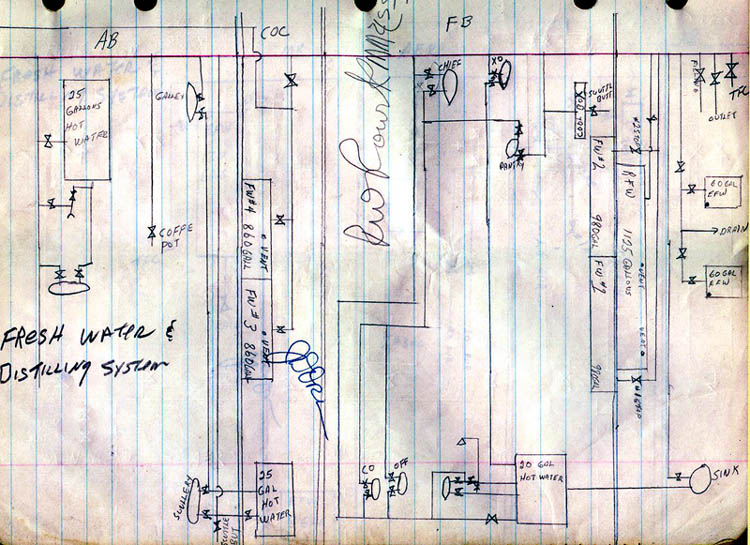 AB
COC
FB
25
GALLONS
HOT
WATER
GALLEY
COFFE
POT
FRESH WATER &
DISTILLING SYSTEM
FW#4 860GALL
VENT
FW#3 860GAL
VENT
SCULLERY
SCUTTLE
BUT
25
GAL
HOT
WATER
CHIEF
XO
PANTRY
COOL
SCUTTL
BUTT
FW#2
980GAL
FW#1
980GAL
RFW
1125 GALLONS
VENT
VENT
CO
OFF
20 GAL
HOT WATER
SINK
OUTLET
60 GAL
EFW
DRAIN
60 GAL
EFW